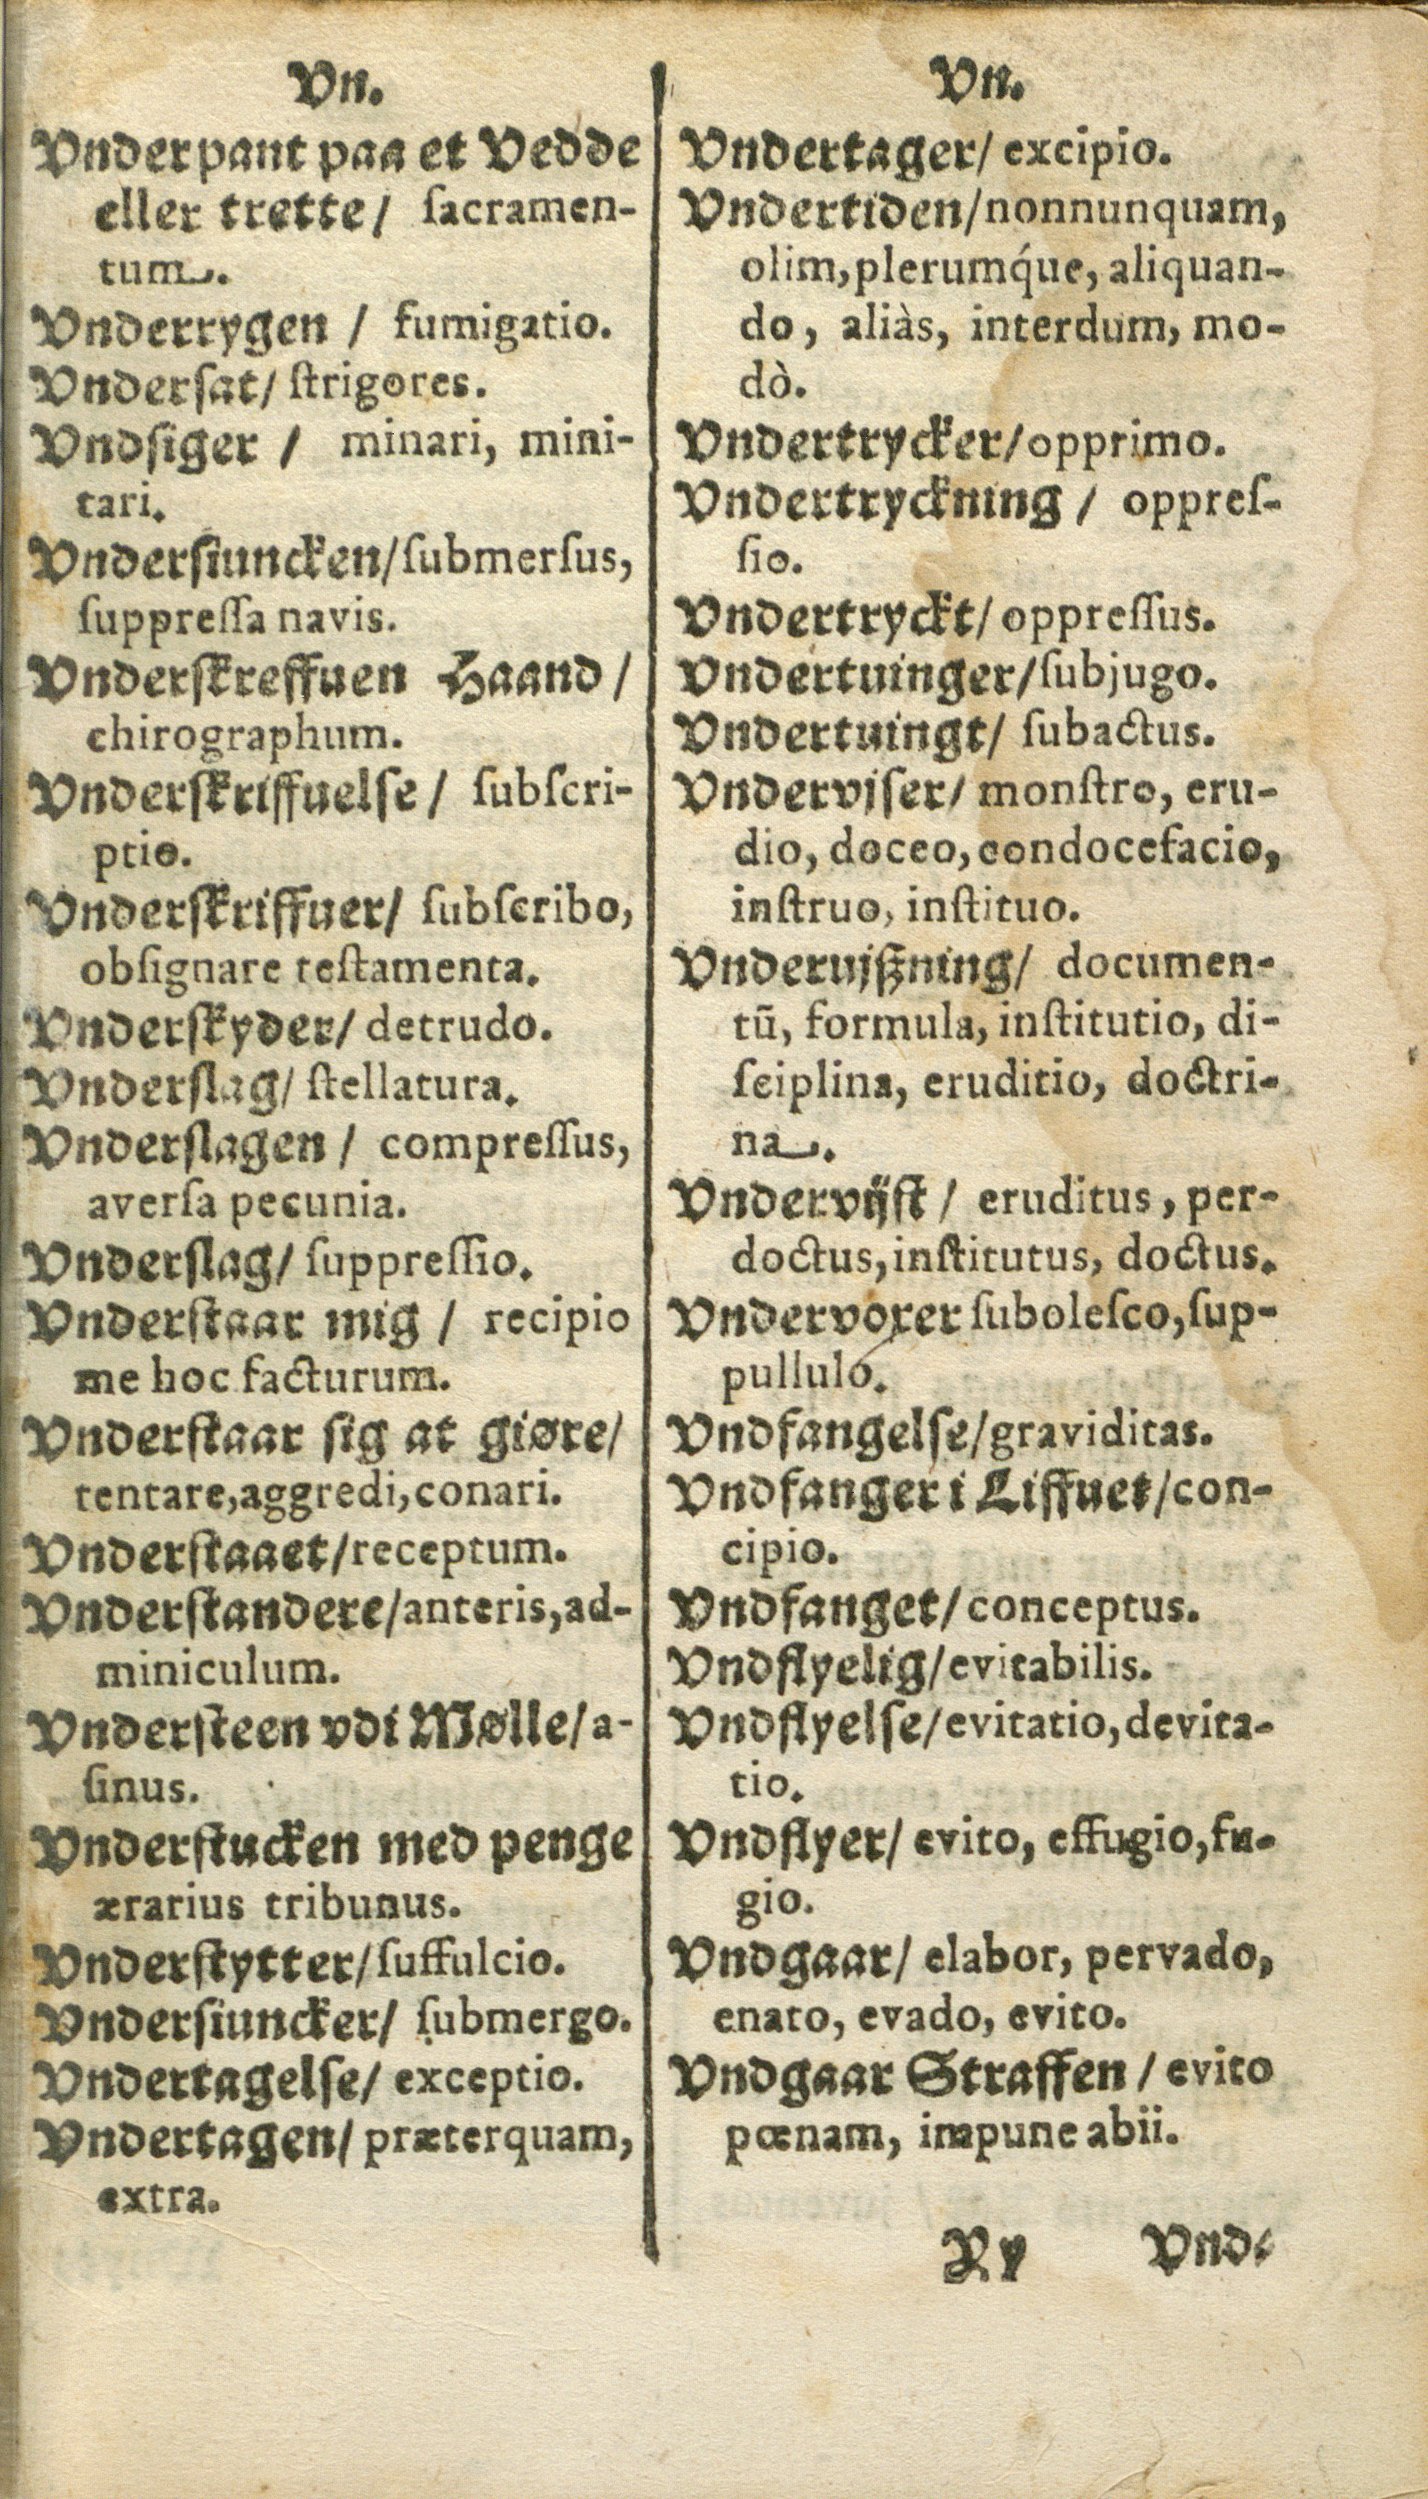 Vn.
Vnderpant paa et Vedde
eller trette/ ſacramen-
tum.
Vnderrygen / fumigatio.
Vnderſat/ ſtrigores.
Vndſiger / minari, mini-
tari.
Vnderſiuncken/ſubmerſus,
ſuppreſſa navis.
Vnderſkreffuen Haand/
chirographum.
Vnderſkriffuelſe/ ſubſcri-
ptio.
Vnderſkriffuer/ ſubſcribo,
obſignare teſtamenta.
Vnderſkyder/ detrudo.
Vnderſlag/ ſtellatura.
Vnderſlagen/ compreſſus,
averſa pecunia.
Vnderſlag/ ſuppreſſio.
Vnderſtaar mig / recipio
me hoc facturum.
Vnderſtaar ſig at giøre/
tentare,aggredi,conari.
Vnderſtaaet/receptum.
Vnderſtandere/anteris,ad-
miniculum.
Vnderſteen vdi Mølle/a-
ſinus.
Vnderſtucken med penge
ærarius tribunus.
Vnderſtytter/ſuffulcio.
Vnderſiuncker/ ſubmergo.
Vndertagelſe/ exceptio.
Vndertagen/ præterquam,
extra.
Vn.
Vndertager/ excipio.
Vndertiden/nonnunquam,
olim,plerumq́ue, aliquan-
do, aliàs, interdum, mo-
dò.
Vndertrycker/opprimo.
Vndertryckning / oppreſ-
ſio.
Vndertryckt/ oppreſſus.
Vndertuinger/ſubjugo.
Vndertuingt/ ſubactus.
Vnderviſer/ monſtro, eru-
dio, doceo, condocefacio,
inſtruo, inſtituo.
Vnderuiſzning/ documen-
tū, formula, inſtitutio, di-
ſciplina, eruditio, doctri-
na.
Vndervijſt / eruditus, per-
doctus,inſtitutus, doctus.
Vndervoxer ſuboleſco,ſup-
pullulo.
Vndfangelſe/graviditas.
Vndfanger i Liffuet/con-
cipio.
Vndfanget/ conceptus.
Vndflyelig/evitabilis.
Vndflyelſe/evitatio,devita-
tio.
Vndflyer/ evito, effugio,fu-
gio.
Vndgaar/ elabor, pervado,
enato, evado, evito.
Vndgaar Straffen / evito
pœnam, impune abii.
Yy Vnd-